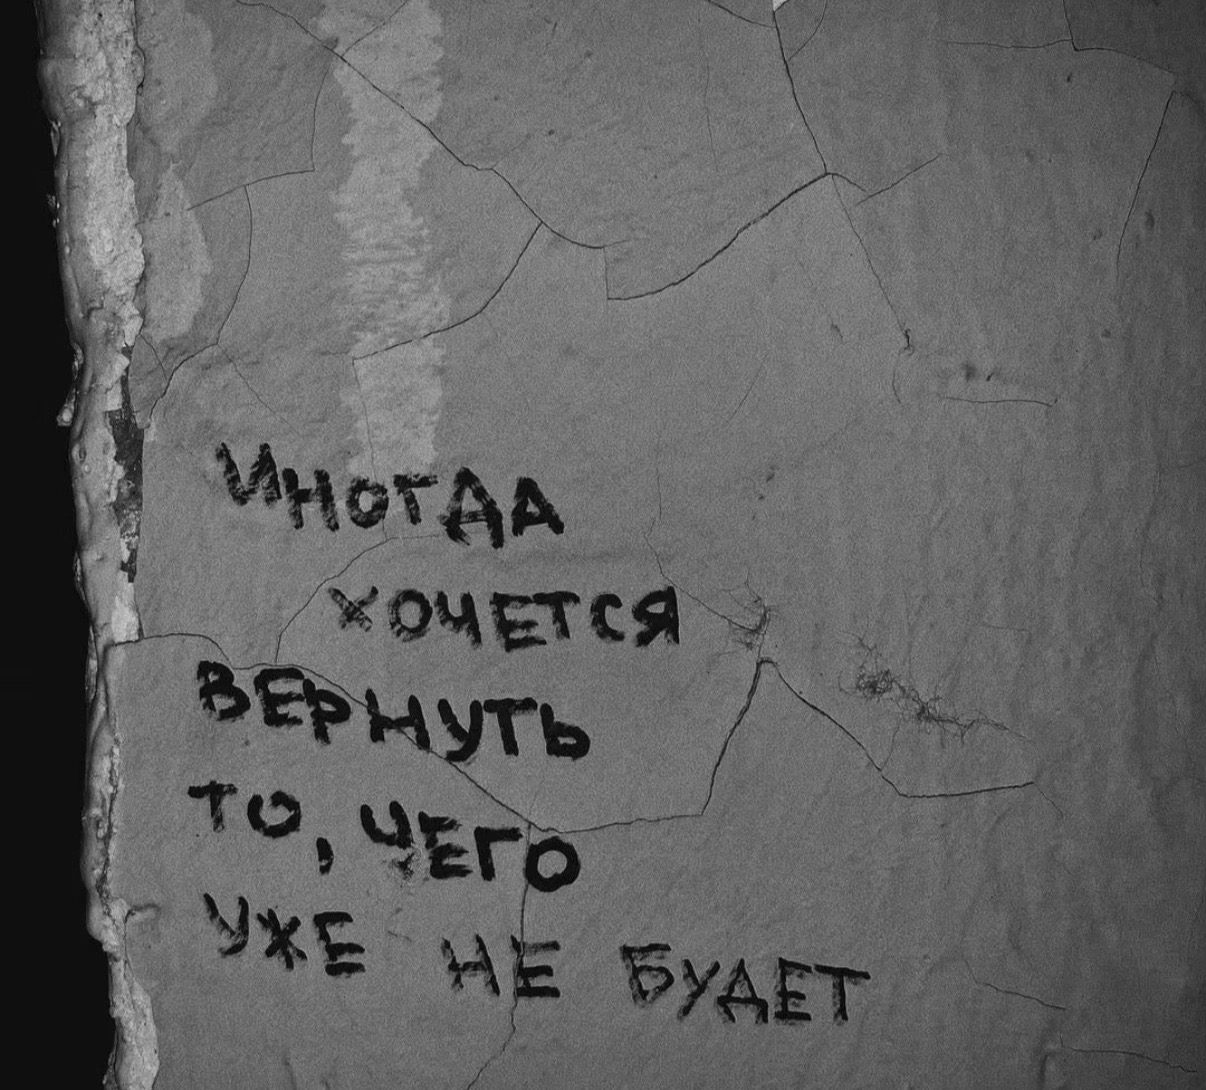 ИНОГДА
ХОЧЕТСЯ
ВЕРНУТЬ
ТО, ЧЕГО
УЖЕ НЕ БУДЕТ